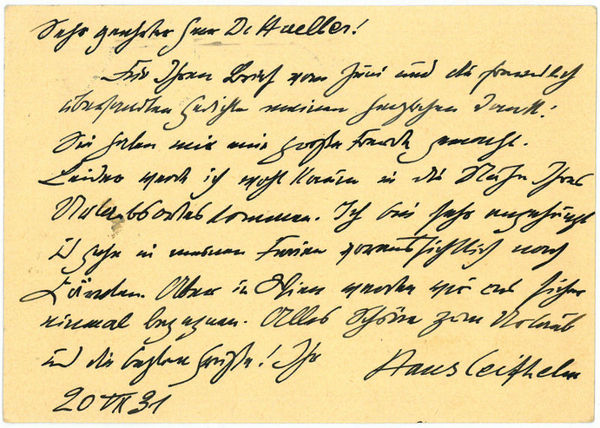 Sehr geehrter Herr Dr Haeller!
Für Ihren Brief vom Juni und die freundlich
übersandten Gedichte meinen herzlichen Dank!
Sie haben mir eine große Freude gemacht.
Leider werde ich wohl kaum in die Nähe Ihres
Urlaubsortes kommen. Ich bin sehr
u gehe in meinen Ferien voraussichtlich nach
Kärnten. Aber in Wien werden wir uns sicher
einmal begegnen. Alles Schöne zum Urlaub
und die besten Grüße! Ihr Hans Leifhelm
20 VII 31